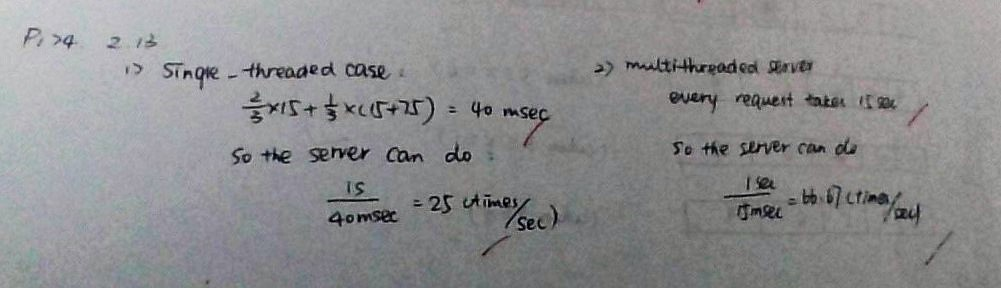 P174 2.13
1) Single-threaded case:
2/3 ×15 + 1/3 ×(15+75) = 40 msec
So the server can do :
1s / 40msec = 25 (times/sec)
2) multithreaded server
every request takes 15 sec
So the server can do
1 sec / 15msec = 66.67 (times/sec)